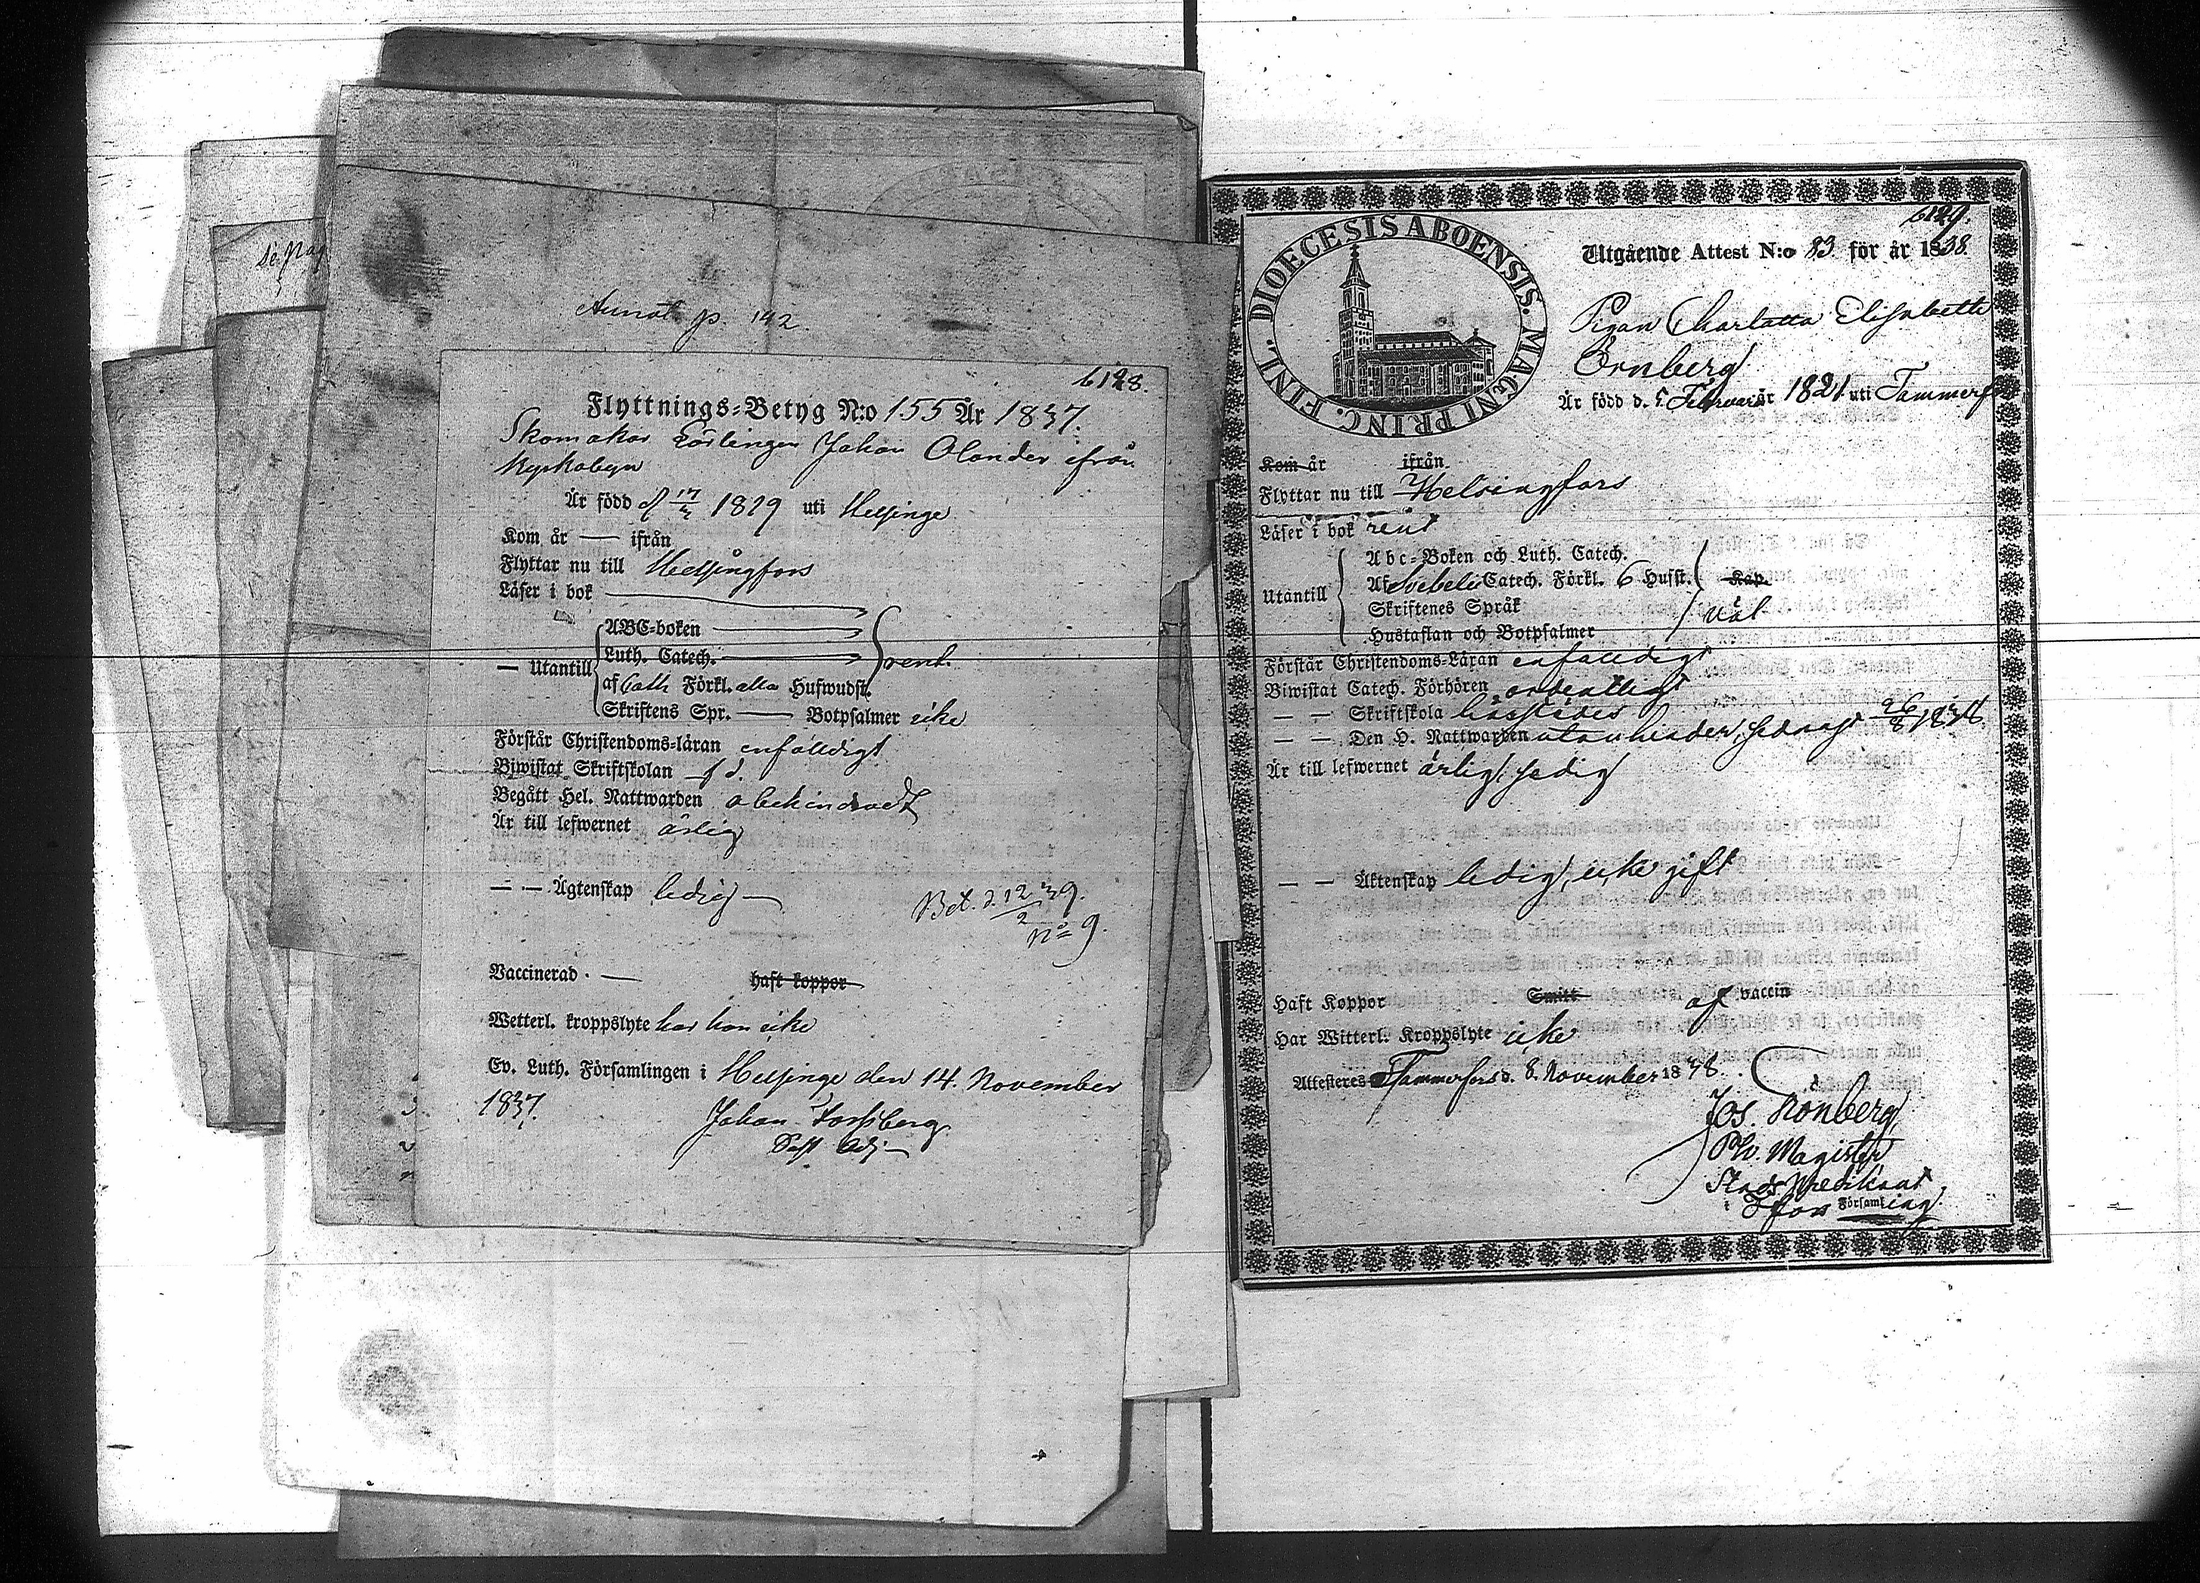 Annot. p. 142.
6128.
Flyttnings-Betyg N:o 155 År 1837.
Skomakar Lärlingen Johan Olander ifrån
Kyrkobyn
Är född d 17/ 1819 uti Helsinge
Kom år — ifrån
Flyttar nu till Helsingfors
Läser i bok
— Utantill
ABC-boken
Luth. Catech.
rent.
af Förkl. alla Hufwudst.
Skriftens Spr. — Botpsalmer icke
Förstår Christendoms-läran enfäldigt
Biwistat Skriftskolan
Begått Hel. Nattwarden obehindradt
Är till lefwernet ärlig
— — Ägtenskap ledig —
Bet. d. 12/2 39.
No 9.
Vaccinerad · — haft koppor
Wetterl. kroppslyte har han icke
Ev. Luth. Församlingen i Helsinge den 14. November
1837.
Johan Forssberg
Past Adj —
6129
DIOECESIS ABOENSIS. MAGNI PRINC. FINL.
Utgående Attest N:o 83. för år 1838.
Pigan Charlotta Elisabeth
Örnberg
Är född d. 5 Februari år 1821 uti Tammerfors
Kom år ifrån
Flyttar nu till Helsingfors
Läser i bok rent
Utantill
Abc-Boken och Luth. Catech.
Af Svebeli Catech. Förkl. 6 Hufst. Kap.
Skriftenes Språk
väl
Hustaflan och Botpsalmer
Förstår Christendoms-Läran enfaldigt
Biwistat Catech. Förhören ordentligt
— — Skriftskola härstädes
— — Den H. Nattwarden utan hinder, sednast 26/8 1838.
Är till lefwernet ärlig, sedig
— — Äktenskap ledig, icke gift
Haft Koppor Smitt af vaccin
Har Witterl. Kroppslyte icke
Attesteres Tammerfors d. 8. November 1838.
Jos. Grönberg,
Ph. Magister
Stads Predikant
i T:fors Församling.